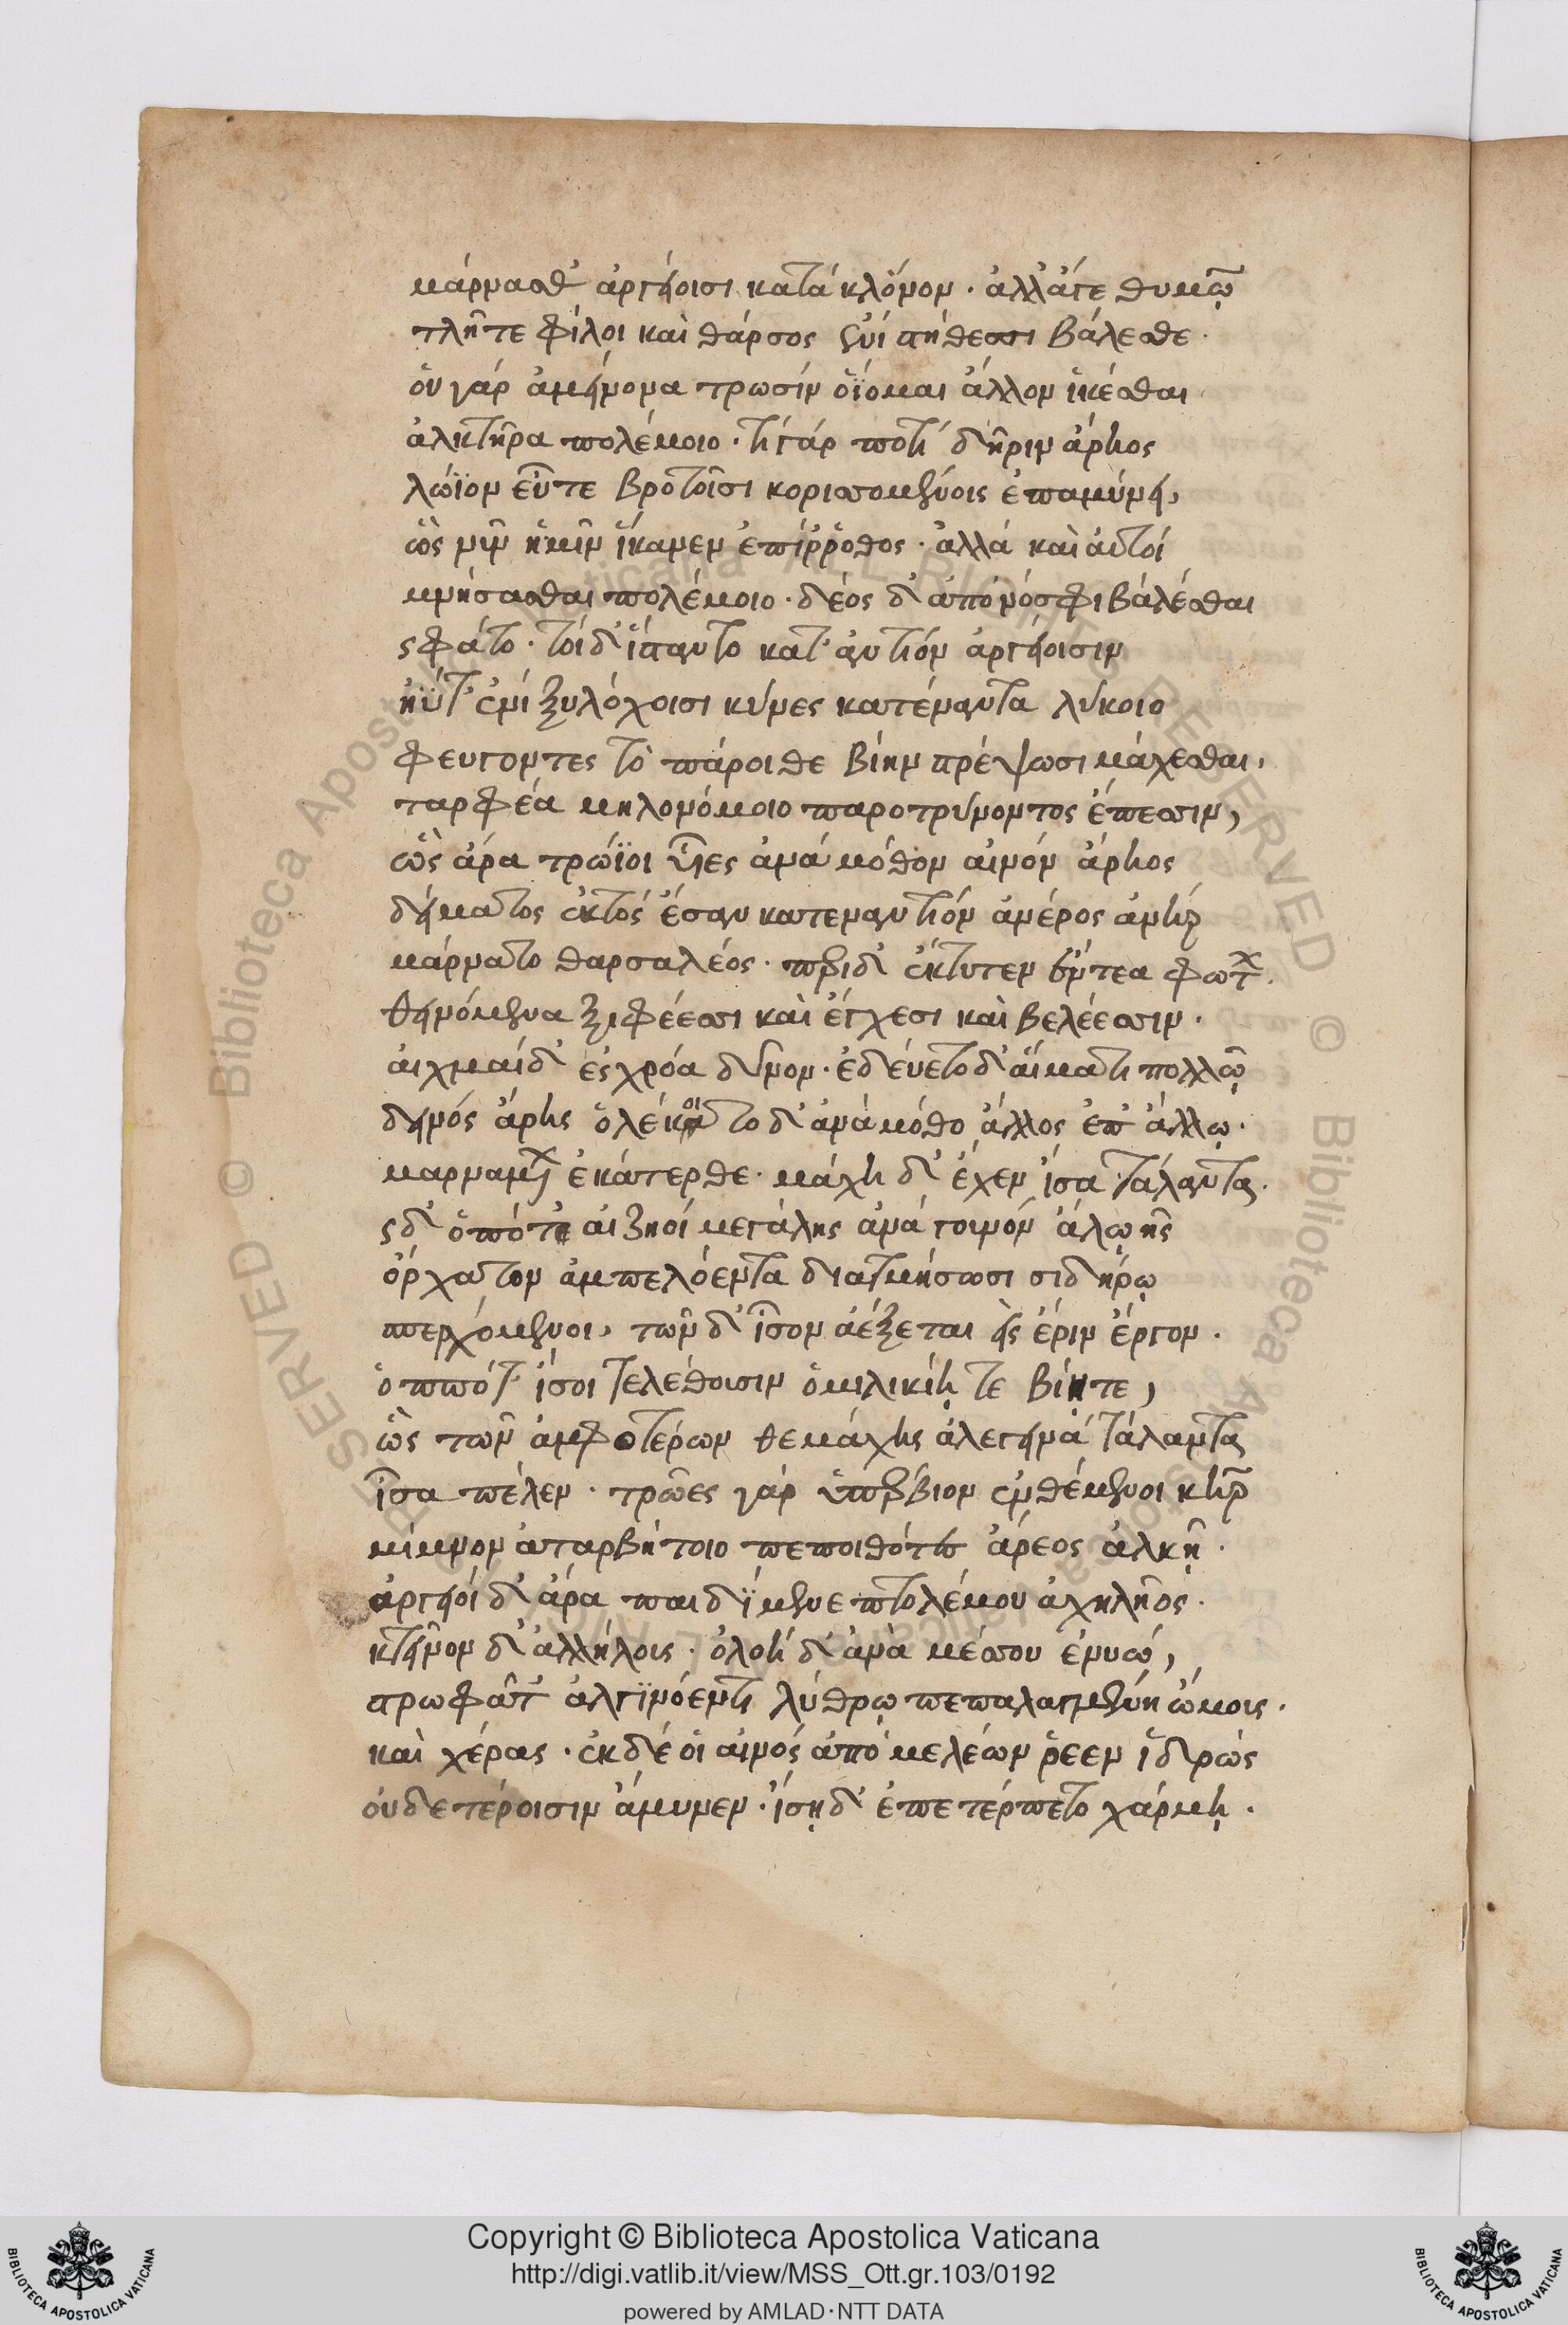 μάρνασθ' ἀργείοισι κατά κλόνον · ἀλλ' ἄγε θυμῶ
τλῆτε φίλοι καὶ θάρσος ἐνί στήθεσσι βάλεσθε ·
ὀυ γάρ ἀμείνονα τρωσίν ὀΐομαι ἄλλον ἱκέσθαι
ἀλκτῆρα πολέμοιο · τί γάρ ποτί δῆριν ἄρηος
λώϊον εὖτε βροτοῖσι κορυσσομένοις ἐπαμύνει,
ὡς νῦν ἡμῖν ἵκανεν ἐπίρροθος · ἀλλά καὶ ἀυτοί
μνήσασθαι πολέμοιο · δέος δ' ἀπό νόσφι βάλέσθαι
ς φάτο · τοί δ' ἵσταντο κατ' ἀντίον ἀργείοισιν
ἠΰτ' ἐνί ξυλόχοισι κύνες κατέναντα λύκοιο
φευγοντες τὸ πάροιθε βίην τρέψωσι μάχεσθαι,
ταρφέα μηλονόμοιο παροτρύνοντος ἔπεσσιν,
ὡς ἄρα τρώϊοι υἷες ἀνά μόθον αἰνόν ἄρηος
δείματος ἐκτός ἔσαν κατεναντίον ἀνέρος ἀνήρ
μάρνατο θαρσαλέος · περί δ' ἔκτυπεν ἔντεα φωτῶν
θεινόμενα ξιφέεσσι καὶ ἔγχεσι καὶ βελέεσσιν ·
ἀιχμαί δ' ἐς χρόα δῦνον · ἐδεύετο δ' ἅιματι πολλῶ
δεινός ἄρης ὀλέκοντο δ' ἀνά μόθο ἄλλος ἐπ' ἄλλω ·
μαρναμένων ἑκάτερθε · μάχη δ' ἔχεν ἶσα τάλαντα ·
ς δ' ὁπότ' ἀιζηοί μεγάλης ἀνά γοινόν ἀλωῆς
ὄρχατον ἀμπελόεντα διατμήσωσι σιδήρω
σπερχόμενοι, τῶν δ' ἶσον ἀέξεται εἰς ἔριν ἔργον ·
ὁππότ' ἴσοι τελέθοισιν ὁμηλικίῃ τε βίῃ τε,
ὡς τῶν ἀμφοτέρων θεμάχης ἀλεγεινά τάλαντα
ἶσα πέλεν · τρῶες γάρ ὑπέρβιον ἐνθέμενοι κῆρ
μίμνον ἀταρβήτοιο πεποιθότες ἄρεος ἀλκῇ ·
ἀργεῖοί δ' ἄρα παιδΐ μενεπτολέμου ἀχιλῆος ·
κτεῖνον δ' ἀλλήλοις · ὀλοή δ' ἀνὰ μέσσον ἐνυώ,
στρωφᾶτ' ἀλγϊνόεντι λύθρω πεπαλαγμένη ὤμοις ·
καὶ χέρας · ἐκ δέ ὁι ἀινός ἀπό μελέων ῥέεν ἱδρώς
ὀυδετέροισιν ἄμυνεν · ἴσῃ δ' ἐπετέρπετο χάρμῃ ·
Copyright © Biblioteca Apostolica Vaticana
http://digi.vatlib.it/view/MSS_Ott.gr.103/0192
powered by AMLAD·NTT DATA
BIBLIOTECA APOSTOLICA VATICANA
BIBLIOTECA APOSTOLICA VATICANA